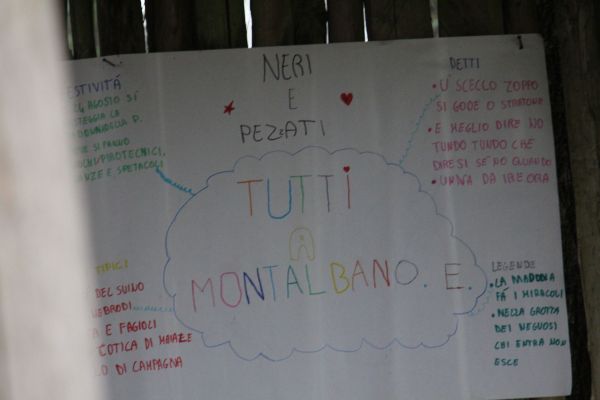 NERI
E
PEZZATI
TUTTI
A
MONTALBANO. E.
ESTIVITÁ
AGOSTO SI
TEGGIA LA
P.
SI FANNO
PIROTECNICI,
E SPETACOLI
DETTI
• U' SCECCO ZOPPO
SI GODE O STRATONE
• E MEGLIO DIRE NO
TUNDO TUNDO CHE
DIRE SI E NO QUANDO
DA
TIPICI
DEL SUINO
NEBRODI
A E FAGIOLI
COTICA DI MAIALE
LO DI CAMPAGNA
LEGENDE
• LA MADONNA
FÁ I MIRACOLI
• NELLA GROTTA
DEI
CHI ENTRA NON
ESCE